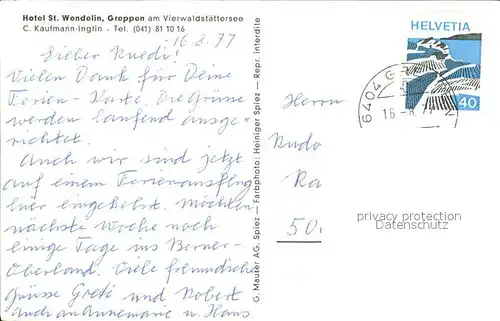 Hotel St. Wendolin, Greppen am Vierwaldstättersee
C. Kaufmann-Inglin - Tel. (041) 81 10 16
16.8.77
Lieber Ruedi!
Vielen Dank für Deine
Ferien-Karte. Die Grüsse
werden laufend ausge-
richtet.
Auch wir sind jetzt
auf einem Ferienausflug
hier eingekehrt. Möchten
nächste Woche noch
einige Tage ins Berner-
Oberland. Viele freundliche
Grüsse Greti und Robert
Auch an Annemarie u. Hans
G. Maurer AG, Spiez — Farbphoto: Heiniger Spiez — Repr. interdite
HELVETIA
40
6404 G
16.-8
Herrn
Rudo
Ra
50
privacy protection
DELCAMPE